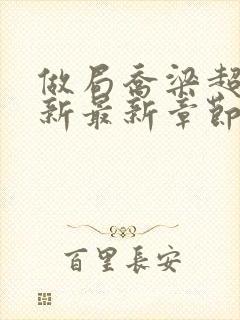 做局乔梁超
新最新章節
百里長安